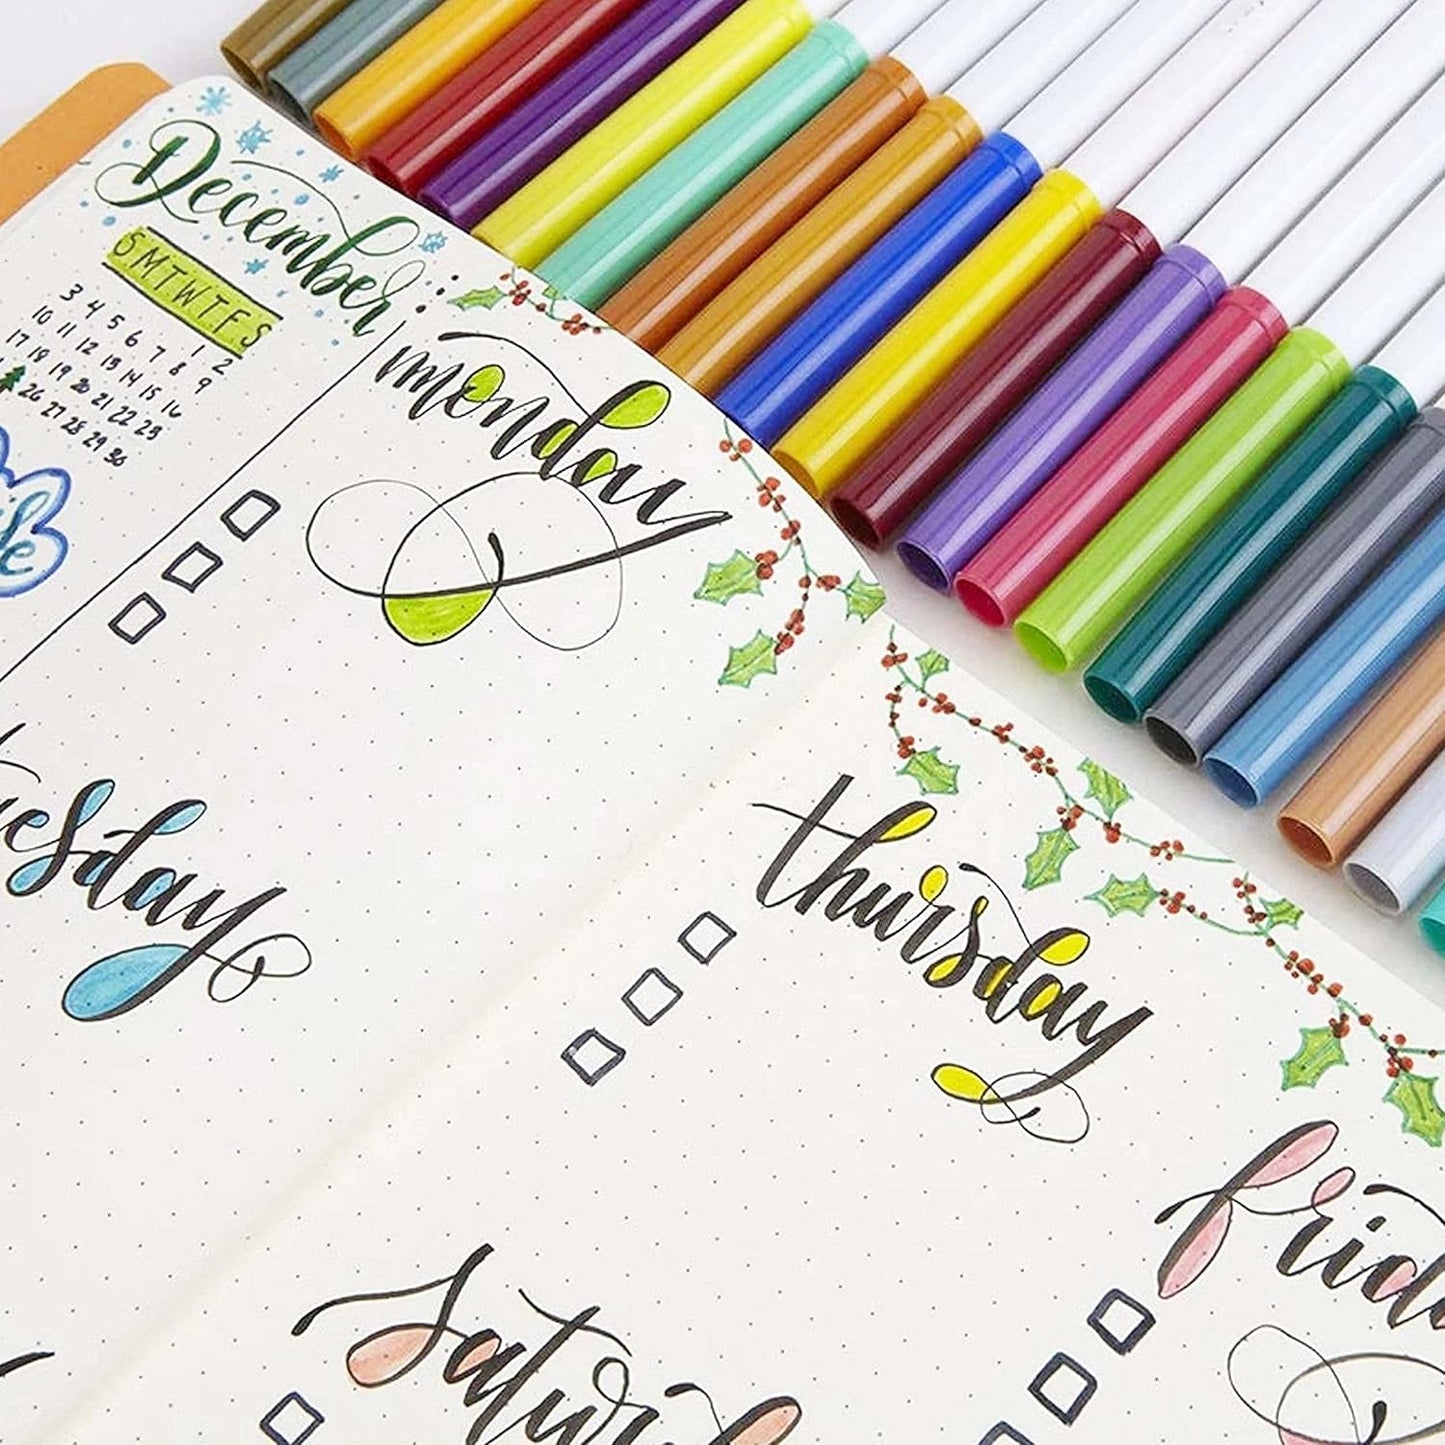 December
S M T W T F S
1 2
3 4 5 6 7 8 9
10 11 12 13 14 15 16
17 18 19 20 21 22 23
26 27 28 29 30
monday
tuesday
thursday
friday
saturday